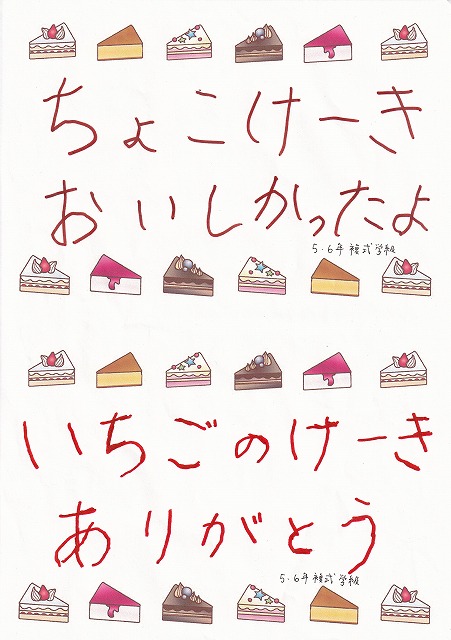 ちょこけーき
おいしかったよ
5・6年 複式学級
いちごのけーき
ありがとう
5・6年 複式学級